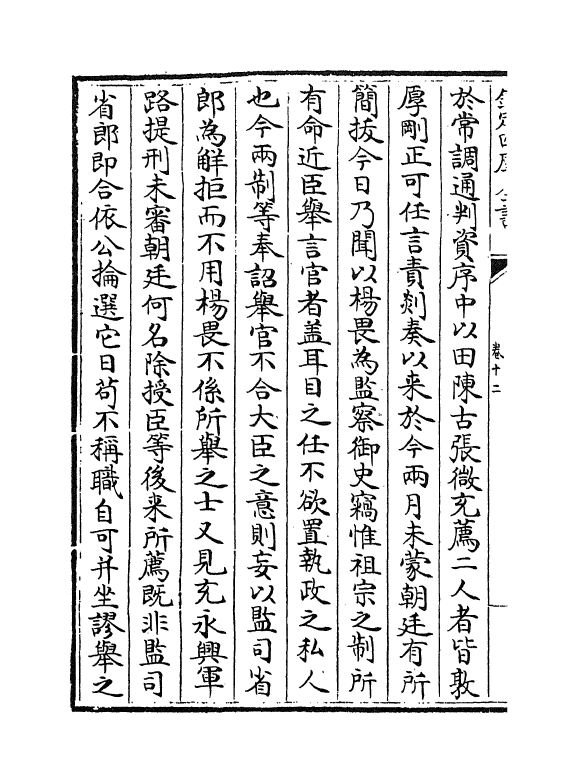 欽定四庫全書
卷十二
於常調通判資序中以田陳古張微充薦二人者皆敦
厚剛正可任言責剡奏以来於今兩月未蒙朝廷有所
簡拔今日乃聞以楊畏為監察御史竊惟祖宗之制所
有命近臣舉言官者盖耳目之任不欲置執政之私人
也今兩制等奉詔舉官不合大臣之意則妄以監司省
郎為觧拒而不用楊畏不係所舉之士又見充永興軍
路提刑未審朝廷何名除授臣等後来所薦既非監司
省郎即合依公掄選它日苟不稱職自可并坐謬舉之